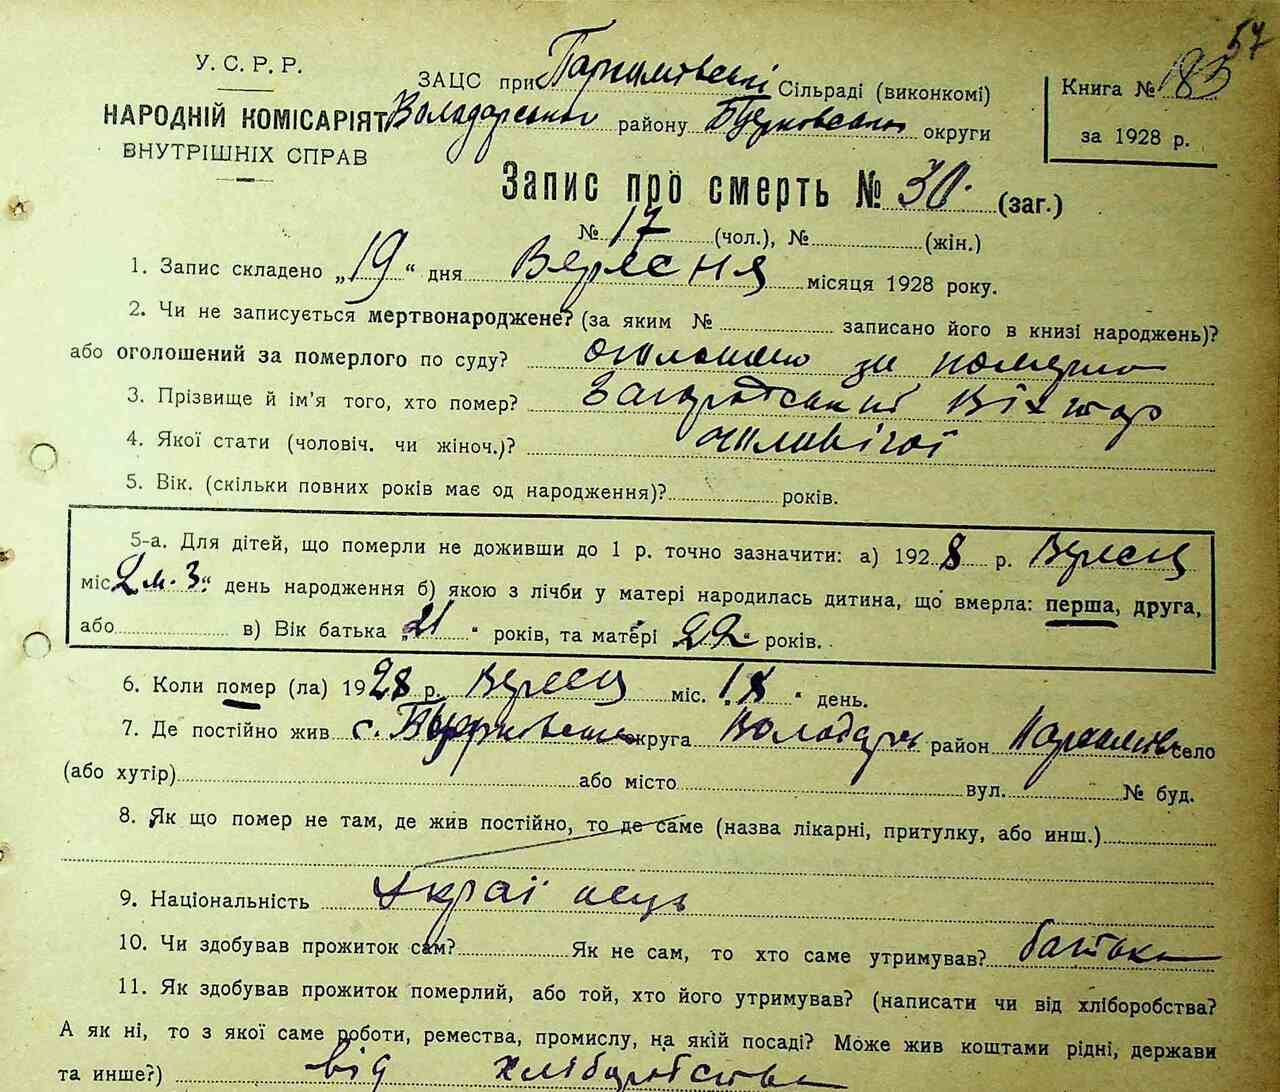 57
У. С. Р. Р.
НАРОДНІЙ КОМІСАРІЯТ
ВНУТРІШНІХ СПРАВ
ЗАЦС при Пархомівській Сільраді (виконкомі)
Володарського району Б.Церковської округи
Книга № 183
за 1928 р.
Запис про смерть № 30. (заг.)
№ 17 (чол.), № (жін.)
1. Запис складено „19“ дня Вересня місяця 1928 року.
2. Чи не записується мертвонароджене? (за яким № записано його в книзі народжень)?
або оголошений за померлого по суду? за
3. Прізвище й ім'я того, хто помер? Загородський Віхтор
4. Якої стати (чоловіч. чи жіноч.)? чоловічої
5. Вік. (скільки повних років має од народження)? років.
5-а. Для дітей, що померли не доживши до 1 р. точно зазначити: а) 1928 р. Вересц
міс. день народження б) якою з лічби у матері народилась дитина, що вмерла: перша, друга,
або в) Вік батька „21“ років, та матері „22“ років.
6. Коли помер (ла) 1928 р. Вересц міс. „18“ день.
7. Де постійно жив с. округа Володарс район Пархомівк село
(або хутір) або місто вул. № буд.
8. Як що помер не там, де жив постійно, то де саме (назва лікарні, притулку, або инш.)
9. Національність Украї нець
10. Чи здобував прожиток сам? Як не сам, то хто саме утримував? батьки
11. Як здобував прожиток померлий, або той, хто його утримував? (написати чи від хліборобства?
А як ні, то з якої саме роботи, ремества, промислу, на якій посаді? Може жив коштами рідні, держави
та инше?) від хліборобства